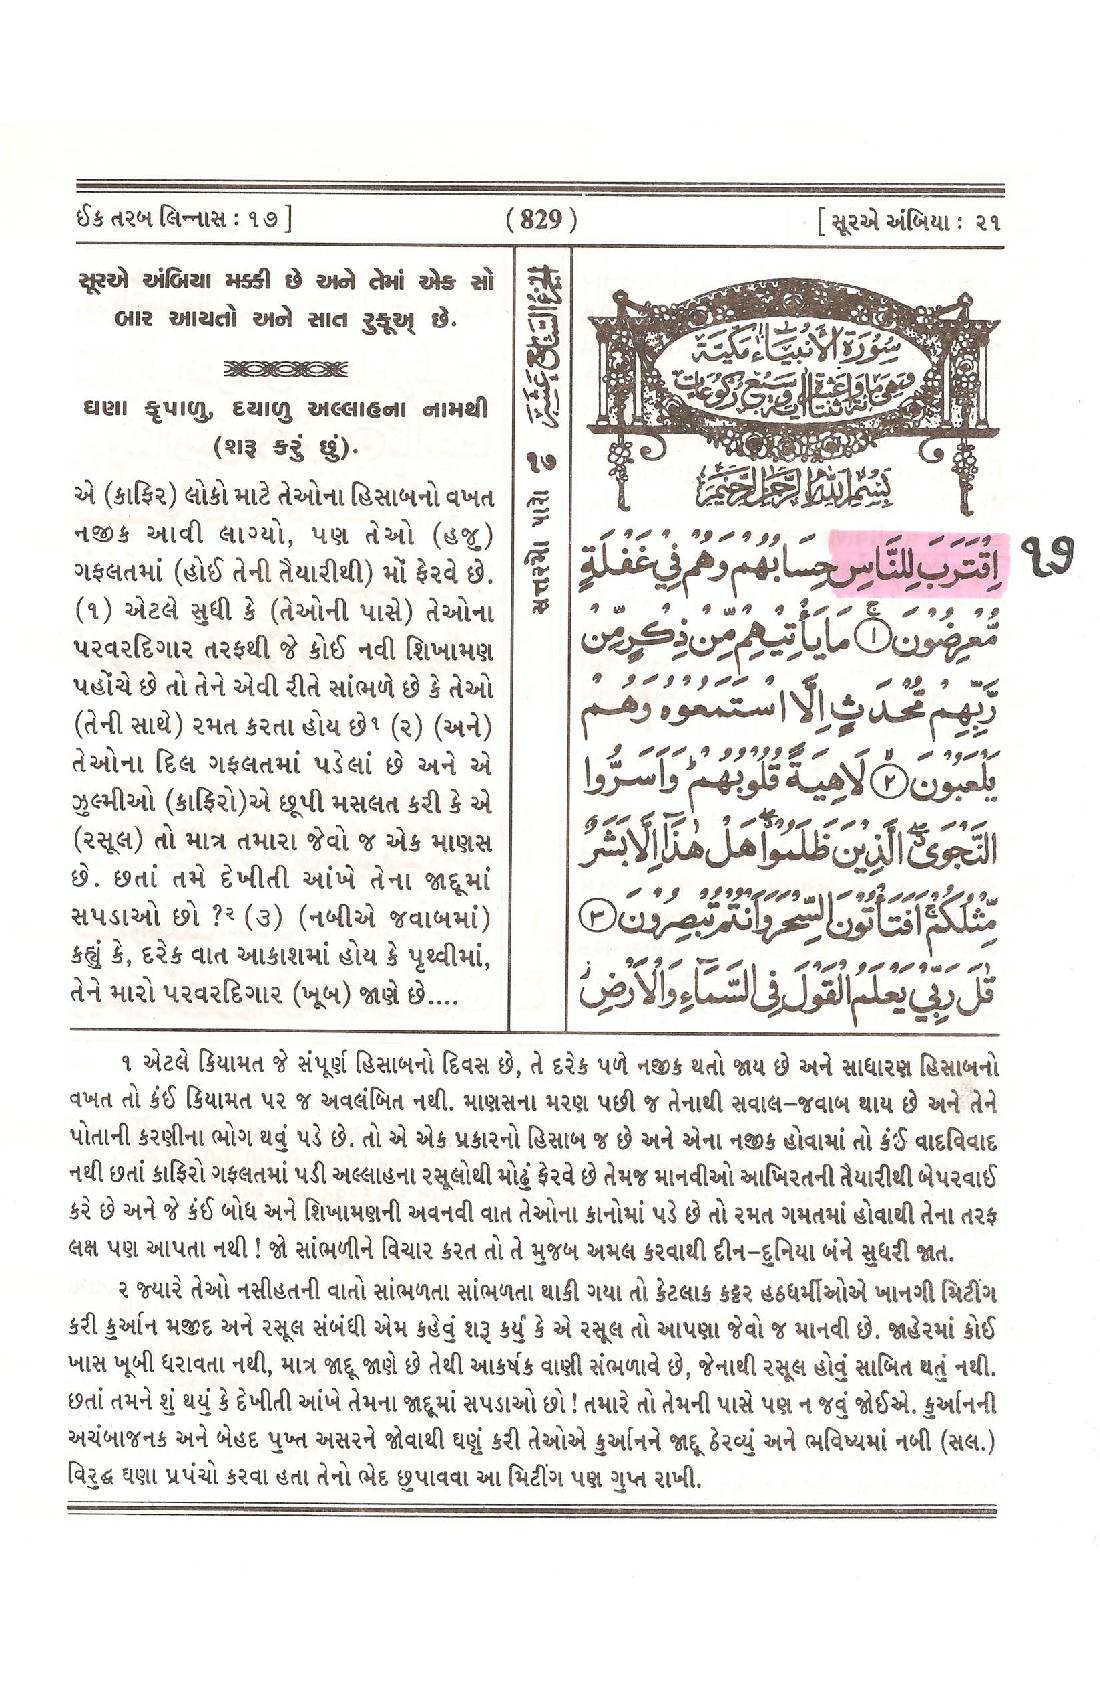 ઈક તરબ લિન્નાસ : ૧૭ ]
( 829 )
[ સૂરએ અંબિયા : ૨૧
સૂરએ અંબિયા મક્કી છે અને તેમાં એક સો
બાર આયતો અને સાત રુકૂઅ્ છે.
ઘણા કૃપાળુ, દયાળુ અલ્લાહના નામથી
(શરૂ કરું છું).
એ (કાફિર) લોકો માટે તેઓના હિસાબનો વખત
નજીક આવી લાગ્યો, પણ તેઓ (હજુ)
ગફલતમાં (હોઈ તેની તૈયારીથી) મોં ફેરવે છે.
(૧) એટલે સુધી કે (તેઓની પાસે) તેઓના
પરવરદિગાર તરફથી જે કોઈ નવી શિખામણ
પહોંચે છે તો તેને એવી રીતે સાંભળે છે કે તેઓ
(તેની સાથે) રમત કરતા હોય છે૧ (૨) (અને)
તેઓના દિલ ગફલતમાં પડેલાં છે અને એ
ઝુલ્મીઓ (કાફિરો)એ છૂપી મસલત કરી કે એ
(રસૂલ) તો માત્ર તમારા જેવો જ એક માણસ
છે. છતાં તમે દેખીતી આંખે તેના જાદૂમાં
સપડાઓ છો ?૨ (૩) (નબીએ જવાબમાં)
કહ્યું કે, દરેક વાત આકાશમાં હોય કે પૃથ્વીમાં,
તેને મારો પરવરદિગાર (ખૂબ) જાણે છે....
સત્તરમો પારો ૧૭
سُورَةُ الْأَنْبِيَاءِ مَكِّيَّةٌ
بِسْمِ اللهِ الرَّحْمٰنِ الرَّحِيْمِ
اِقْتَرَبَ لِلنَّاسِ حِسَابُهُمْ وَهُمْ فِيْ غَفْلَةٍ
૧૭
مُّعْرِضُوْنَ ۚ ١ مَا يَأْتِيْهِمْ مِّنْ ذِكْرٍ مِّنْ
رَّبِّهِمْ مُّحْدَثٍ اِلَّا اسْتَمَعُوْهُ وَهُمْ
يَلْعَبُوْنَ ۙ ٢ لَاهِيَةً قُلُوْبُهُمْ ؕ وَاَسَرُّوا
النَّجْوَى ۖ الَّذِيْنَ ظَلَمُوْا ۖ هَلْ هٰذَآ اِلَّا بَشَرٌ
مِّثْلُكُمْ ۚ اَفَتَأْتُوْنَ السِّحْرَ وَاَنْتُمْ تُبْصِرُوْنَ ٣
قٰلَ رَبِّيْ يَعْلَمُ الْقَوْلَ فِى السَّمَآءِ وَالْاَرْضِ ؗ
૧ એટલે કિયામત જે સંપૂર્ણ હિસાબનો દિવસ છે, તે દરેક પળે નજીક થતો જાય છે અને સાધારણ હિસાબનો
વખત તો કંઈ કિયામત પર જ અવલંબિત નથી. માણસના મરણ પછી જ તેનાથી સવાલ–જવાબ થાય છે અને તેને
પોતાની કરણીના ભોગ થવું પડે છે. તો એ એક પ્રકારનો હિસાબ જ છે અને એના નજીક હોવામાં તો કંઈ વાદવિવાદ
નથી છતાં કાફિરો ગફલતમાં પડી અલ્લાહના રસૂલોથી મોઢું ફેરવે છે તેમજ માનવીઓ આખિરતની તૈયારીથી બેપરવાઈ
કરે છે અને જે કંઈ બોધ અને શિખામણની અવનવી વાત તેઓના કાનોમાં પડે છે તો રમત ગમતમાં હોવાથી તેના તરફ
લક્ષ પણ આપતા નથી ! જો સાંભળીને વિચાર કરત તો તે મુજબ અમલ કરવાથી દીન–દુનિયા બંને સુધરી જાત.
૨ જ્યારે તેઓ નસીહતની વાતો સાંભળતા સાંભળતા થાકી ગયા તો કેટલાક કટ્ટર હઠધર્મીઓએ ખાનગી મિટીંગ
કરી કુર્આન મજીદ અને રસૂલ સંબંધી એમ કહેવું શરૂ કર્યું કે એ રસૂલ તો આપણા જેવો જ માનવી છે. જાહેરમાં કોઈ
ખાસ ખૂબી ધરાવતા નથી, માત્ર જાદૂ જાણે છે તેથી આકર્ષક વાણી સંભળાવે છે, જેનાથી રસૂલ હોવું સાબિત થતું નથી.
છતાં તમને શું થયું કે દેખીતી આંખે તેમના જાદૂમાં સપડાઓ છો ! તમારે તો તેમની પાસે પણ ન જવું જોઈએ. કુર્આનની
અચંબાજનક અને બેહદ પુખ્ત અસરને જોવાથી ઘણું કરી તેઓએ કુર્આનને જાદૂ ઠેરવ્યું અને ભવિષ્યમાં નબી (સલ.)
વિરુદ્ધ ઘણા પ્રપંચો કરવા હતા તેનો ભેદ છુપાવવા આ મિટીંગ પણ ગુપ્ત રાખી.